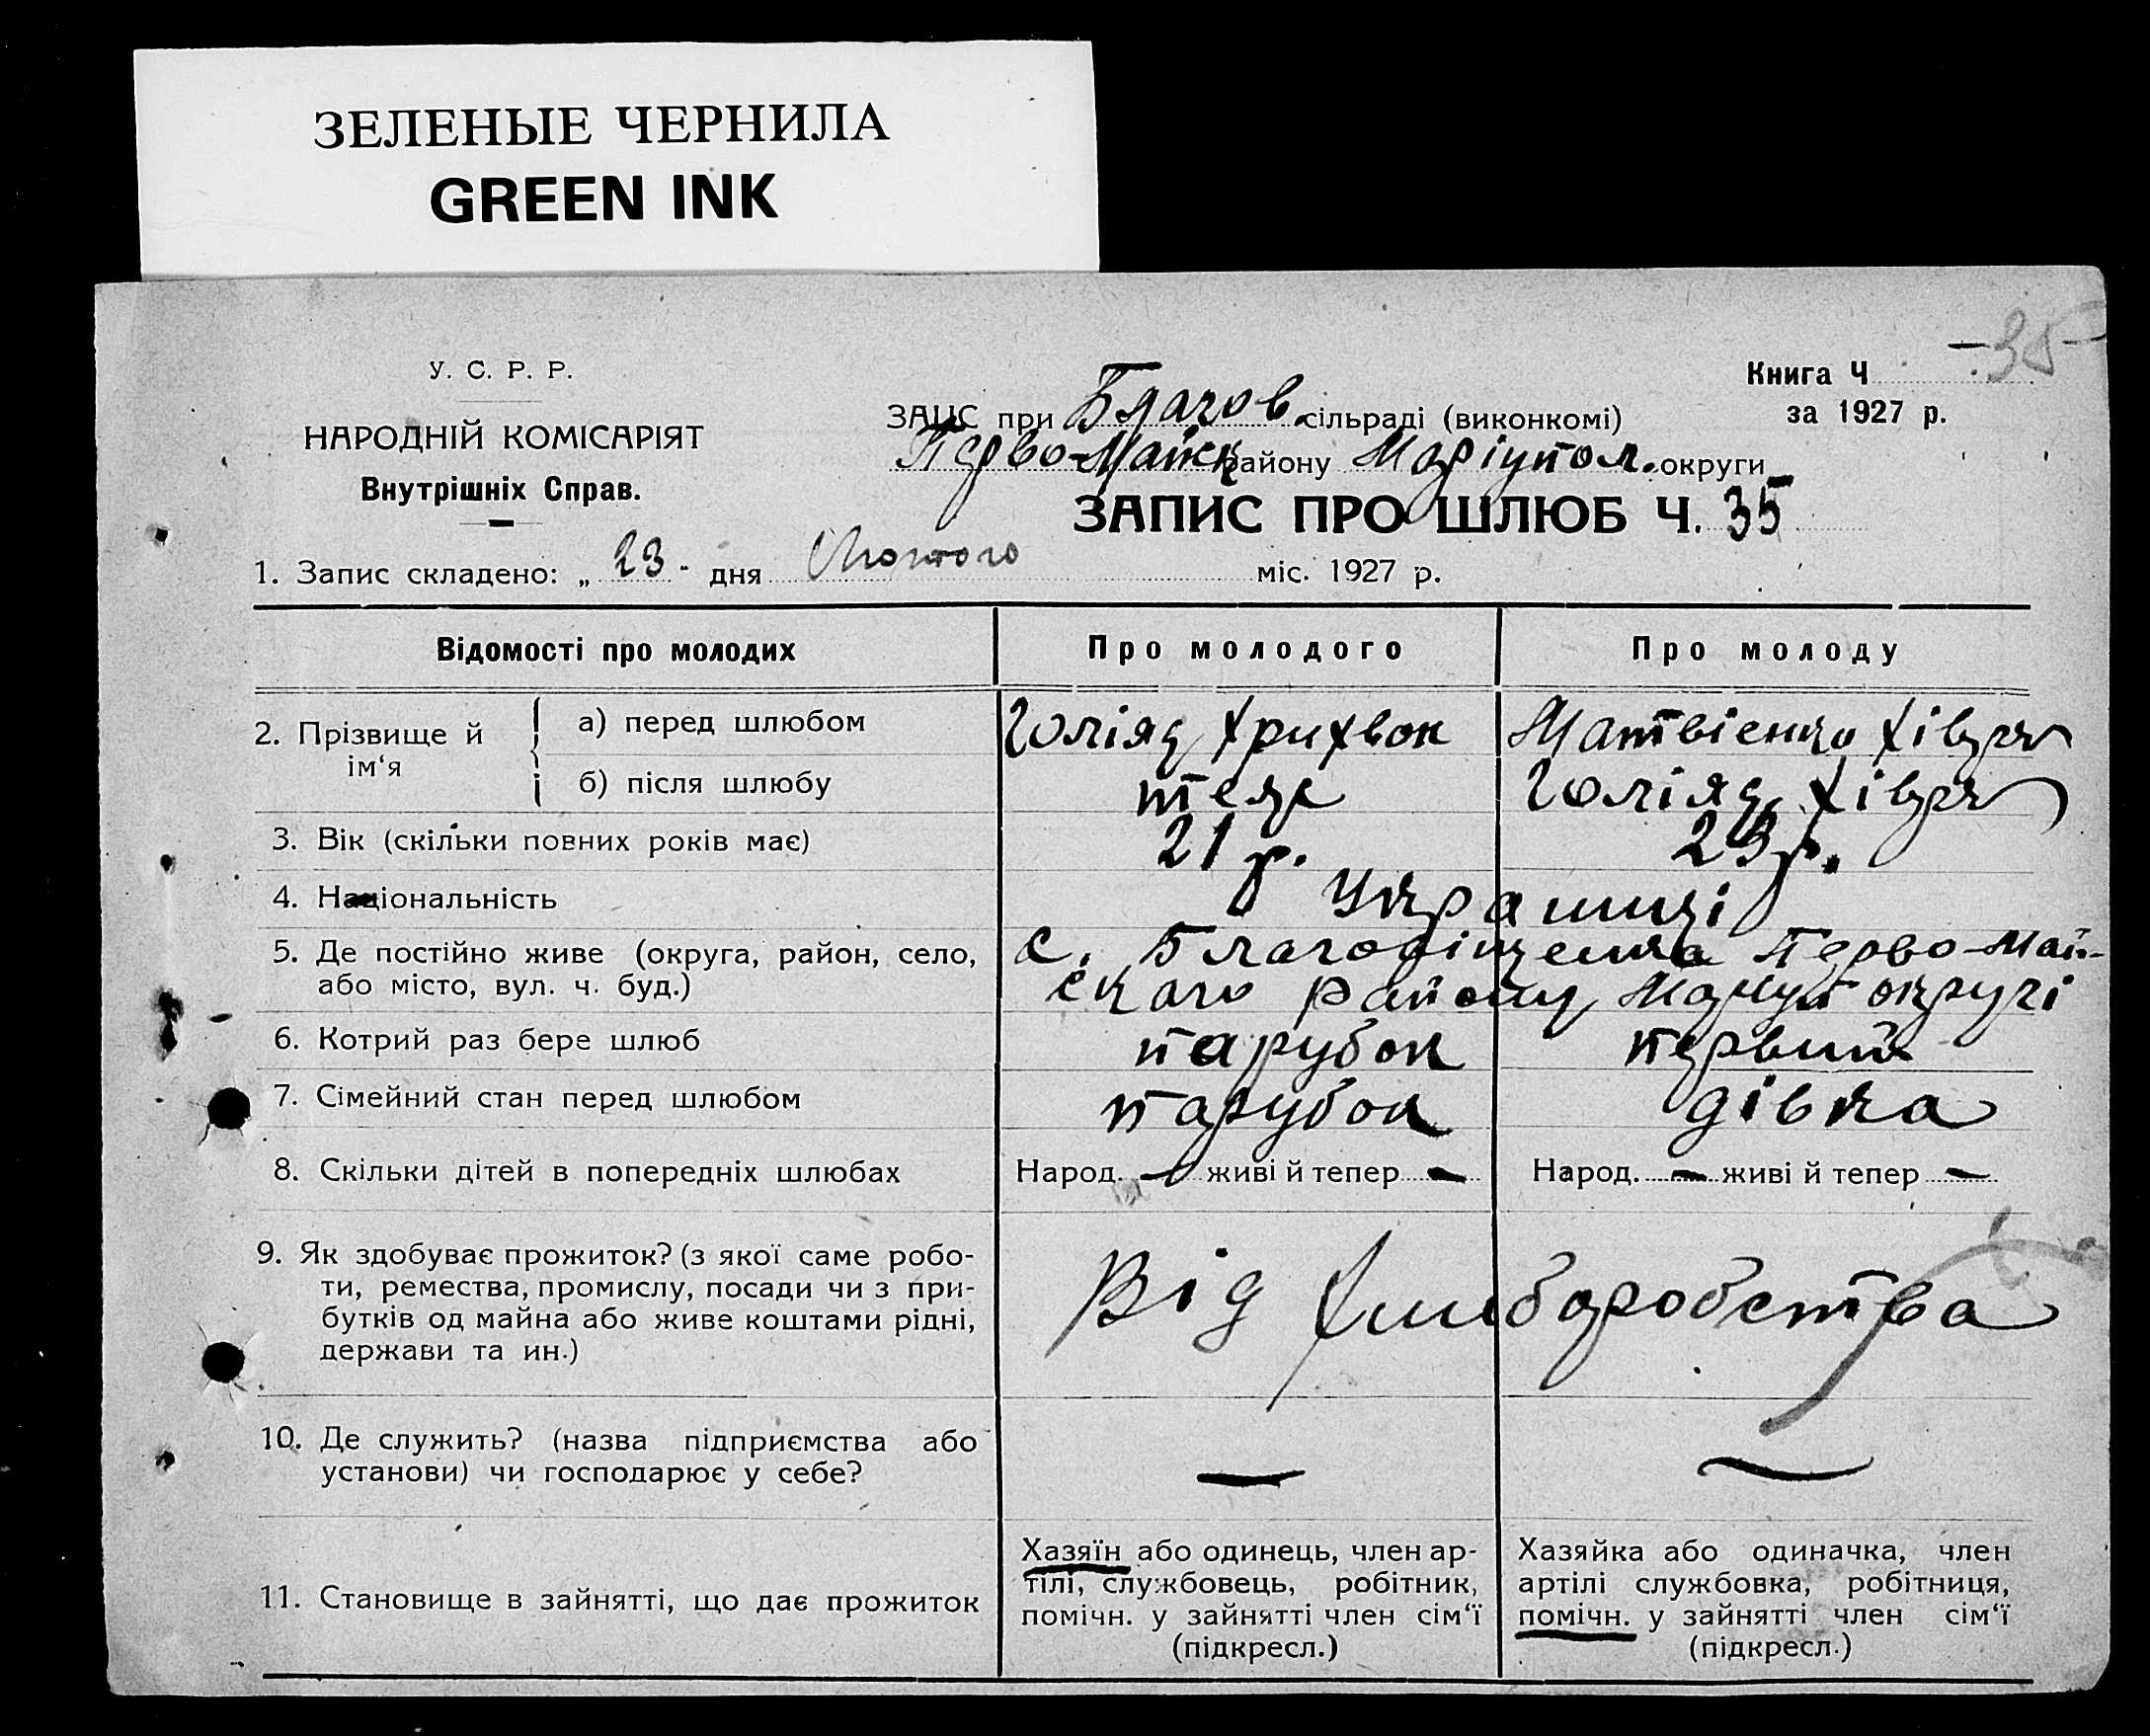 ЗЕЛЕНЫЕ ЧЕРНИЛА
GREEN INK
35
У. С. Р. Р.
НАРОДНІЙ КОМІСАРІЯТ
Внутрішніх Справ.
Книга Ч
за 1927 р.
ЗАЦС при Благов. сільраді (виконкомі)
Перво-Майск району Маріупол. округи
ЗАПИС ПРО ШЛЮБ Ч. 35
1. Запис складено: „ 23 - дня Лютого міс. 1927 р.
Відомості про молодих Про молодого Про молоду
2. Прізвище й ім‘я
а) перед шлюбом Матвієнко Хівря
б) після шлюбу теж Хівря
3. Вік (скільки повних років має) 21 р. 23 р.
4. Національність Украинці
5. Де постійно живе (округа, район, село, с. Перво-Май-
або місто, вул. ч. буд.) ского району округі
6. Котрий раз бере шлюб парубок первий
7. Сімейний стан перед шлюбом парубок дівка
8. Скільки дітей в попередніх шлюбах Народ. — живі й тепер — Народ. — живі й тепер —
9. Як здобуває прожиток? (з якої саме робо-
ти, ремества, промислу, посади чи з при-
бутків од майна або живе коштами рідні,
держави та ин.) Від хлиборобства
10. Де служить? (назва підприємства або
установи) чи господарює у себе? — —
11. Становище в зайнятті, що дає прожиток
Хазяїн або одинець, член ар-
тілі, службовець, робітник,
помічн. у зайнятті член сім‘ї
(підкресл.)
Хазяйка або одиначка, член
артілі службовка, робітниця,
помічн. у зайнятті член сім‘ї
(підкресл.)